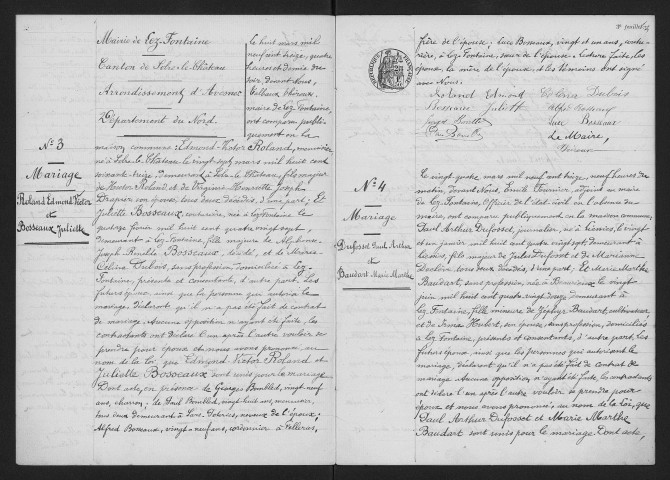 Mairie de Lez-Fontaine
Canton de Solre-le-Château
Arrondissement d'Avesnes
Département du Nord.
N° 3
Mariage
Roland Edmond Victor
et
Bosseaux Juliette
Le huit mars mil
neuf cent treize, quatre
heures et demie du
soir, devant Nous,
maire de Lez-Fontaine,
ont comparu publiquement en la
maison commune : Edmond-Victor Roland, menuisier
né à Solre-le-Château le vingt-sept mars mil huit cent
soixante-treize, demeurant à Solre-le-Château, fils majeur
de Roland et de Virginie Henriette Joseph
Draguier son épouse, tous deux décédés, d'une part ; Et
Juliette Bosseaux, couturière, née à Lez-Fontaine le
quatorze février mil huit cent quatre-vingt-sept,
demeurant à Lez-Fontaine, fille majeure de Alphonse
Joseph Bosseaux, décédé, et de Marie
Célina Dubois, sans profession, domiciliée à Lez-
Fontaine, présente et consentante, d'autre part. Les
futurs époux ainsi que la personne qui autorise le
mariage, déclarent qu'il n'a pas été fait de contrat
de mariage. Aucune opposition n'ayant été faite, les
contractants ont déclaré l'un après l'autre vouloir se
prendre pour époux et nous avons prononcé au
nom de la loi, que Edmond Victor Roland et
Juliette Bosseaux sont unis par le mariage.
Dont acte, en présence de Georges Bouillet, vingt-neuf
ans, charron, de Paul Bouillet, vingt-huit ans, menuisier,
tous deux demeurant à neveux de l'épouse ;
Alfred Bosseaux, vingt-neuf ans, cordonnier à Solleras,
frère de l'épouse ; Luce Bosseaux, vingt et un ans, couturière,
à Lez-Fontaine, sœur de l'épouse. Lecture faite, les
époux, la mère de l'épouse, et les témoins ont signé
avec Nous.
Roland Edmond Célina Dubois
Bosseaux Juliette Alfred Bosseaux
Luce Bosseaux
Le Maire,
N° 4
Mariage
Dufosset Paul Arthur
et
Baudart Marie Marthe
Le vingt-quatre mars mil neuf cent treize, neuf heures du
matin, devant Nous, Emile Fournier, adjoint au maire
de Lez-Fontaine, Officier de l'état-civil en l'absence du
maire, ont comparu publiquement en la maison commune,
Paul Arthur Dufosset, journalier, né à le vingt
et un janvier mil huit cent quatre-vingt-sept, demeurant à
fils majeur de Jules Dufosset et de Marianne
tous deux décédés, d'une part, et Marie Marthe
Baudart, sans profession, née à le vingt
juin mil huit cent quatre-vingt demeurant à
Lez-Fontaine, fille mineure de Baudart, cultivateur
et de Hubert, son épouse, sans profession, domiciliés
à Lez-Fontaine, présents et consentants, d'autre part. Les
futurs époux ainsi que les personnes qui autorisent le
mariage, déclarent qu'il n'a pas été fait de contrat de
mariage. Aucune opposition n'ayant été faite, les contractants
ont déclaré l'un après l'autre vouloir se prendre pour
époux et nous avons prononcé, au nom de la loi, que
Paul Arthur Dufosset et Marie Marthe
Baudart sont unis par le mariage. Dont acte,